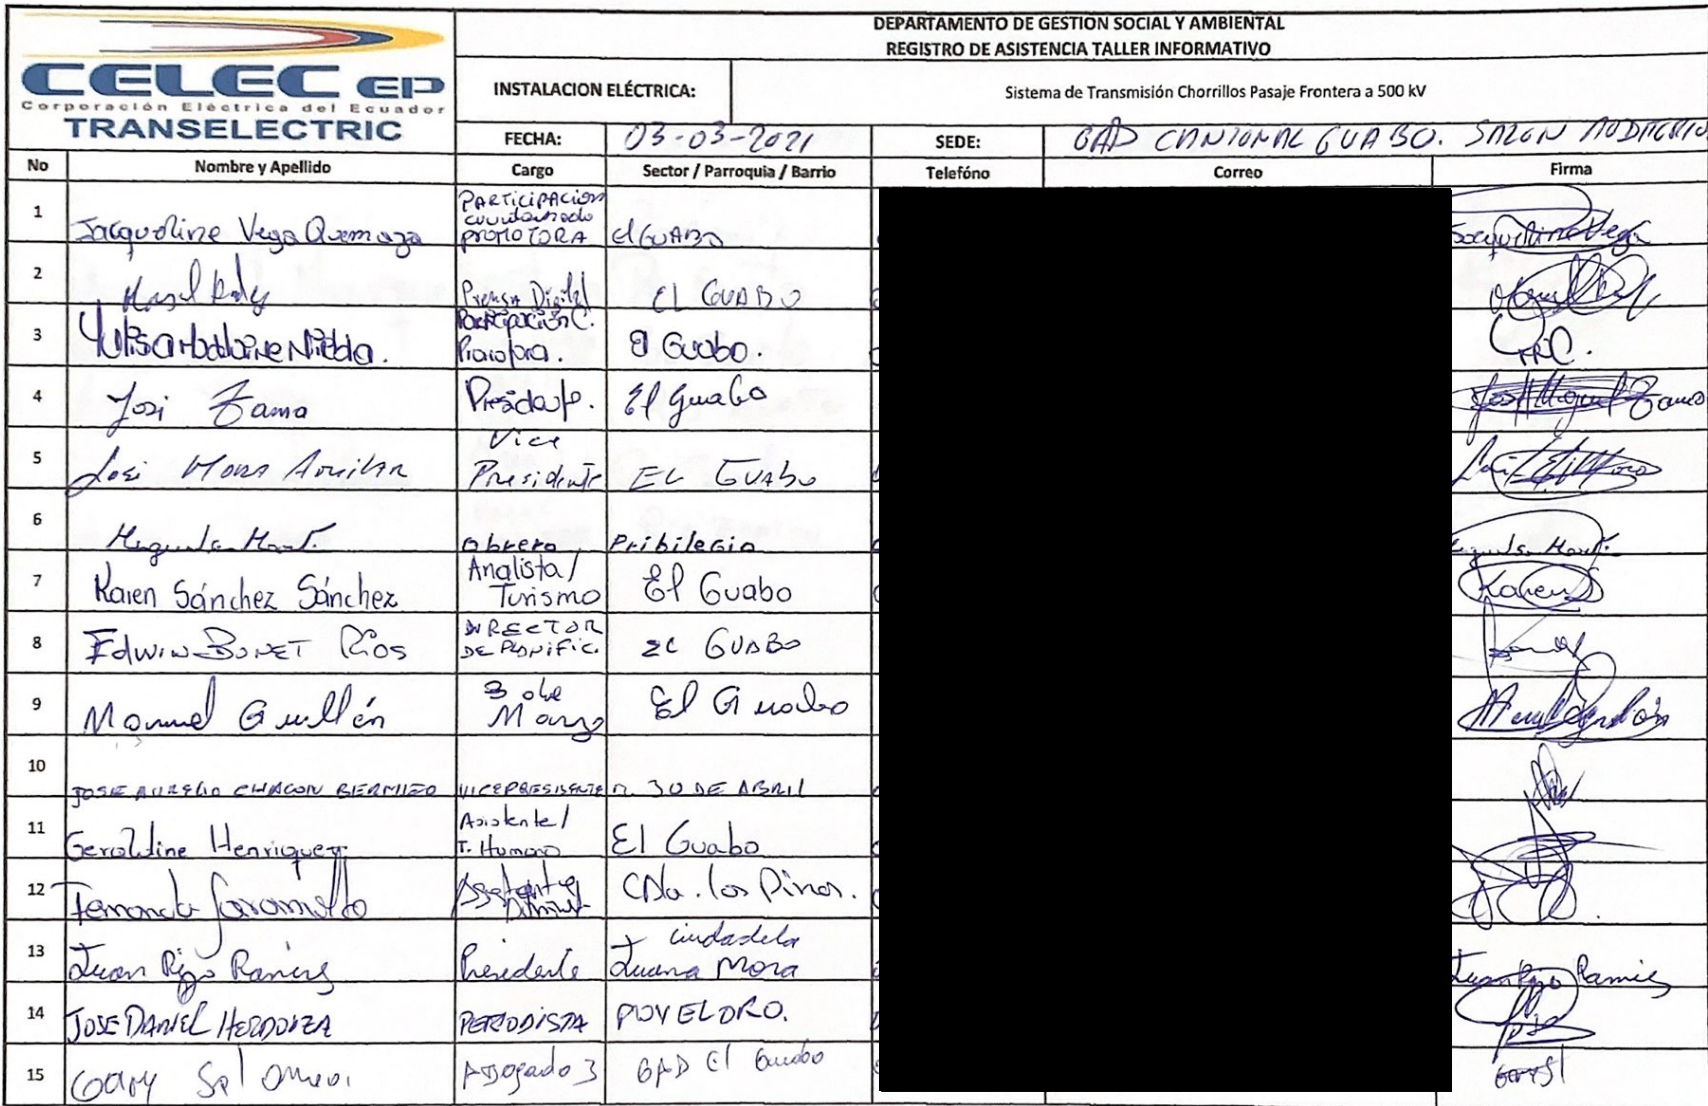 CELEC EP
Corporación Eléctrica del Ecuador
TRANSELECTRIC
DEPARTAMENTO DE GESTION SOCIAL Y AMBIENTAL
REGISTRO DE ASISTENCIA TALLER INFORMATIVO
INSTALACION ELÉCTRICA: Sistema de Transmisión Chorrillos Pasaje Frontera a 500 kV
FECHA: 03-03-2021 SEDE: GAD CANTONAL GUABO. SALON AUDITORIO
No Nombre y Apellido Cargo Sector / Parroquia / Barrio Telefóno Correo Firma
1 Jacqueline Vega PARTICIPACION PROMOTORA El GUABO Jacqueline Vega
2 Prensa Digital EL GUABO
3 Participación C. Promotora. El Guabo.
4 José Zama Presidente. El Guabo José Miguel Zama
5 José Mora Aguilar Vice Presidente EL GUABO
6 obrero Pribilegio
7 Karen Sánchez Sánchez Analista / Turismo El Guabo Karen S
8 Edwin BONET Ríos DIRECTOR DE PLANIFIC. EL GUABO
9 Manuel Guillén 3 de Marzo El Guabo
10 JOSE AURELIO CHACON BERMEO VICEPRESIDENTE 30 DE ABRIL
11 Geraldine Henriquez Asistente / T. Humano El Guabo
12 Fernanda Jaramillo Asistente Cdla. los Pinos.
13 Juan Ramirez Presidente ciudadela Juana Mora Juan Ramirez
14 JOSE DANIEL MENDOZA PERIODISTA
15 Gary Abogado 3 GAD El Guabo